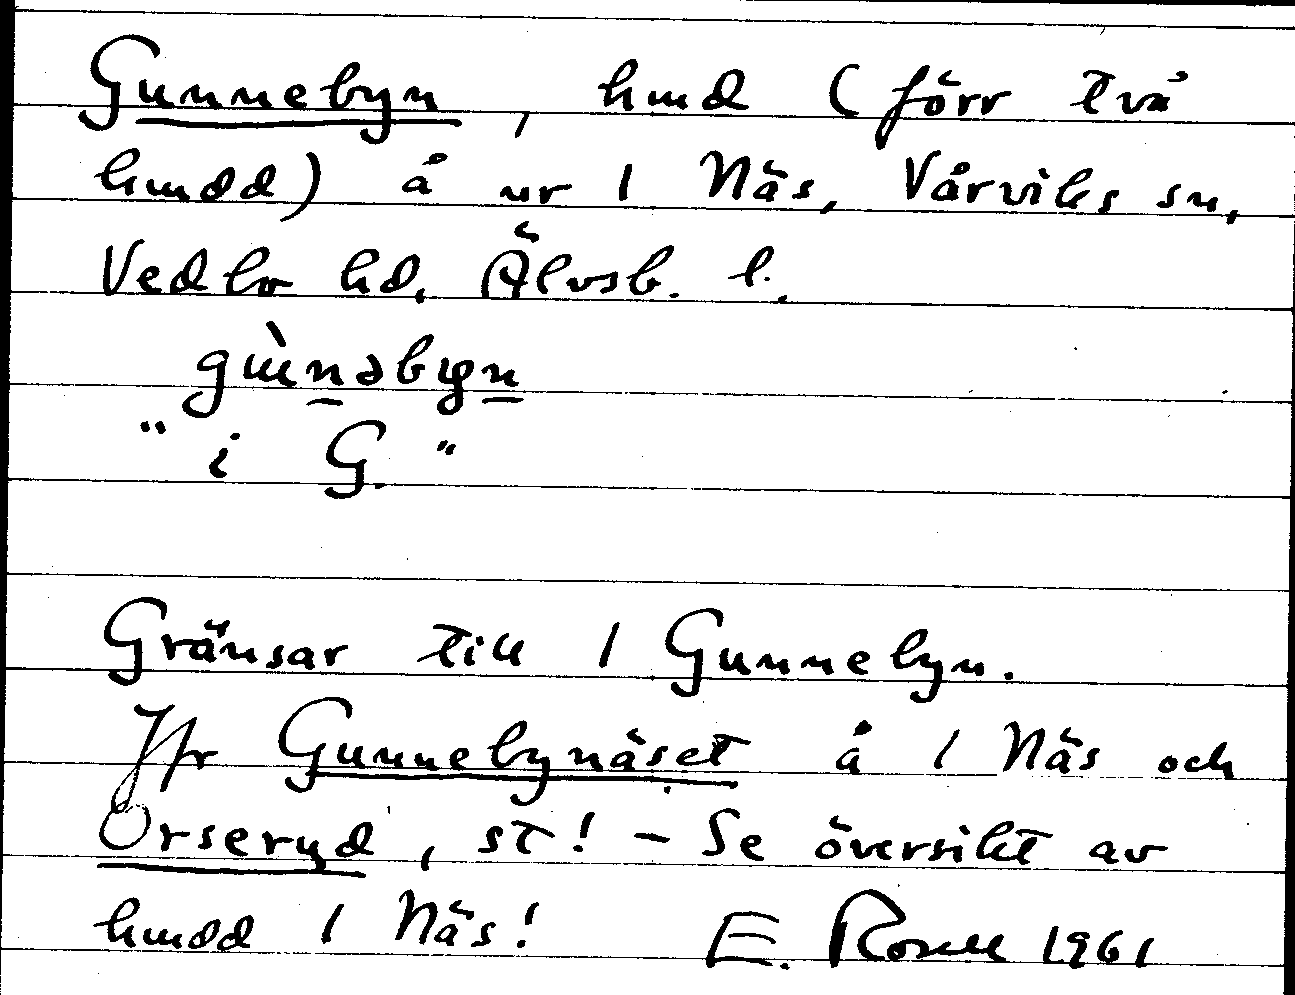 Gunnebyn, hmd (förr två
hmdd) å nr 1 Näs, Vårviks sn,
Vedbo hd, Älvsb. l.
gùnəbyn
"i G."
Gränsar till 1 Gunnebyn.
Jfr Gunnebynäset å 1 Näs och
Orseryd, st! – Se översikt av
hmdd 1 Näs! E. Rosell 1961